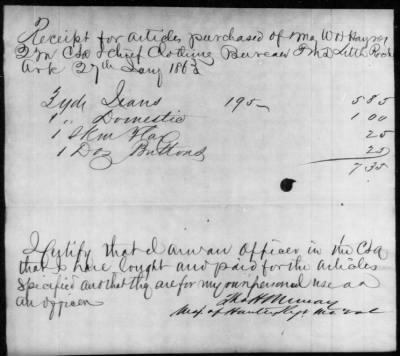 Receipt for articles purchased of Maj W H Haynes
Qm CSA & chief Clothing Bureau Little Rock
Ark 27th Jany 1863
3 yds Jeans 195 5 85
1 " Domestic 1 00
1 Skn Flax 25
1 Doz Buttons 25
7 35
I certify that I am an officer in the CSA
that I have bought and paid for the articles
specified and that they are for my own personal use as
an officer
Tho H Murray
Maj of Hunter Regt Mo Vol